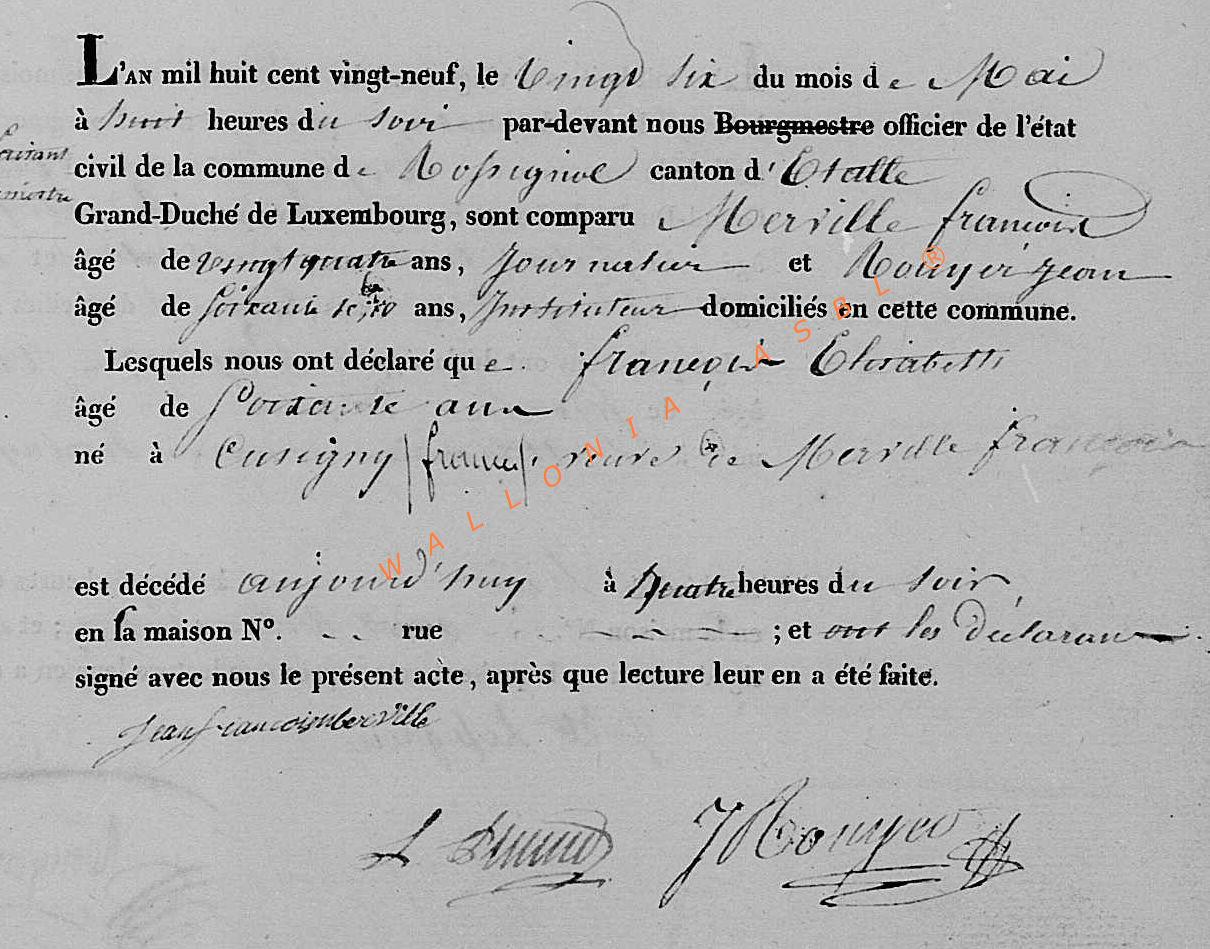 L'AN mil huit cent vingt-neuf, le vingt six du mois de Mai
à huit heures du soir par-devant nous Bourgmestre officier de l'état
civil de la commune de Rossignol canton d'Etalle
Grand-Duché de Luxembourg, sont comparu Merville françois
âgé de vingt quatre ans, Journalier et Rouyer jean
âgé de soixante ans, Instituteur domiciliés en cette commune.
Lesquels nous ont déclaré que françois Elisabeth
âgé de soixante ans
né à Cusigny (france) veuve de Merville françois
est décédé aujourd'huy à quatre heures du soir,
en la maison N°. - - rue - - - - ; et ont les déclarans
signé avec nous le présent acte, après que lecture leur en a été faite.
jean francois merville
J Rouyer
WALLONIA ASBL ®